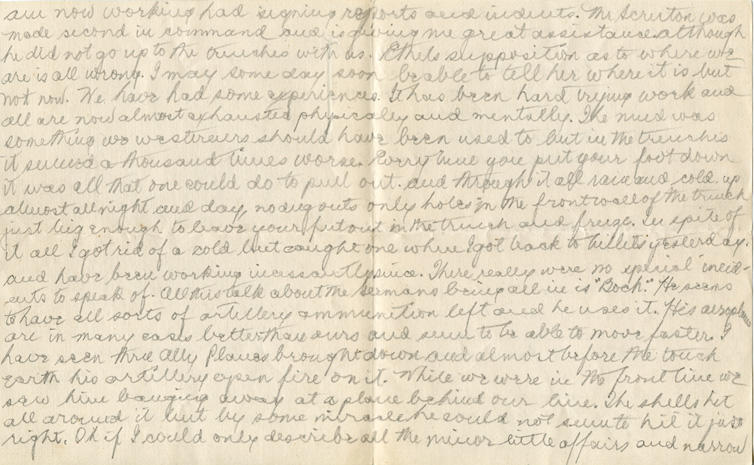 am now working had signing reports and indents. Mr Scruton was
made second in command and is giving me great assistance although
he did not go up to the trenches with us. Ethels supposition as to where we
are is all wrong. I may some day soon be able to tell her where it is but
not now. We have had some experiences. It has been hard trying work and
all are now almost exhausted physically and mentally. The mud was
something we westerners should have been used to but in the trenches
it seemed a thousand times worse. Every time you put your foot down
it was all that one could do to pull out. and through it all rain and cold. up
almost all night and day, no dug outs only holes in the front wall of the trench
just big enough to leave your feet out in the trench and freeze. in spite of
it all I got rid of a cold but caught one when I got back to billets yesterday.
and have been working incessantly since. There really were no special incid-
ents to speak of. All this talk about the Germans being all in is "Boch". He seems
to have all sorts of artillery ammunition left and he uses it. His aeroplanes
are in many cases better than ours and seem to be able to move faster. I
have seen three Ally Planes brought down and almost before the touch
earth his artillery open fire on it. While we were in the front line we
saw him banging away at a plane behind our line. The shells hit
all around it but by some miracle he could not seem to hit it just
right. Oh if I could only describe all the minor little affairs and narrow